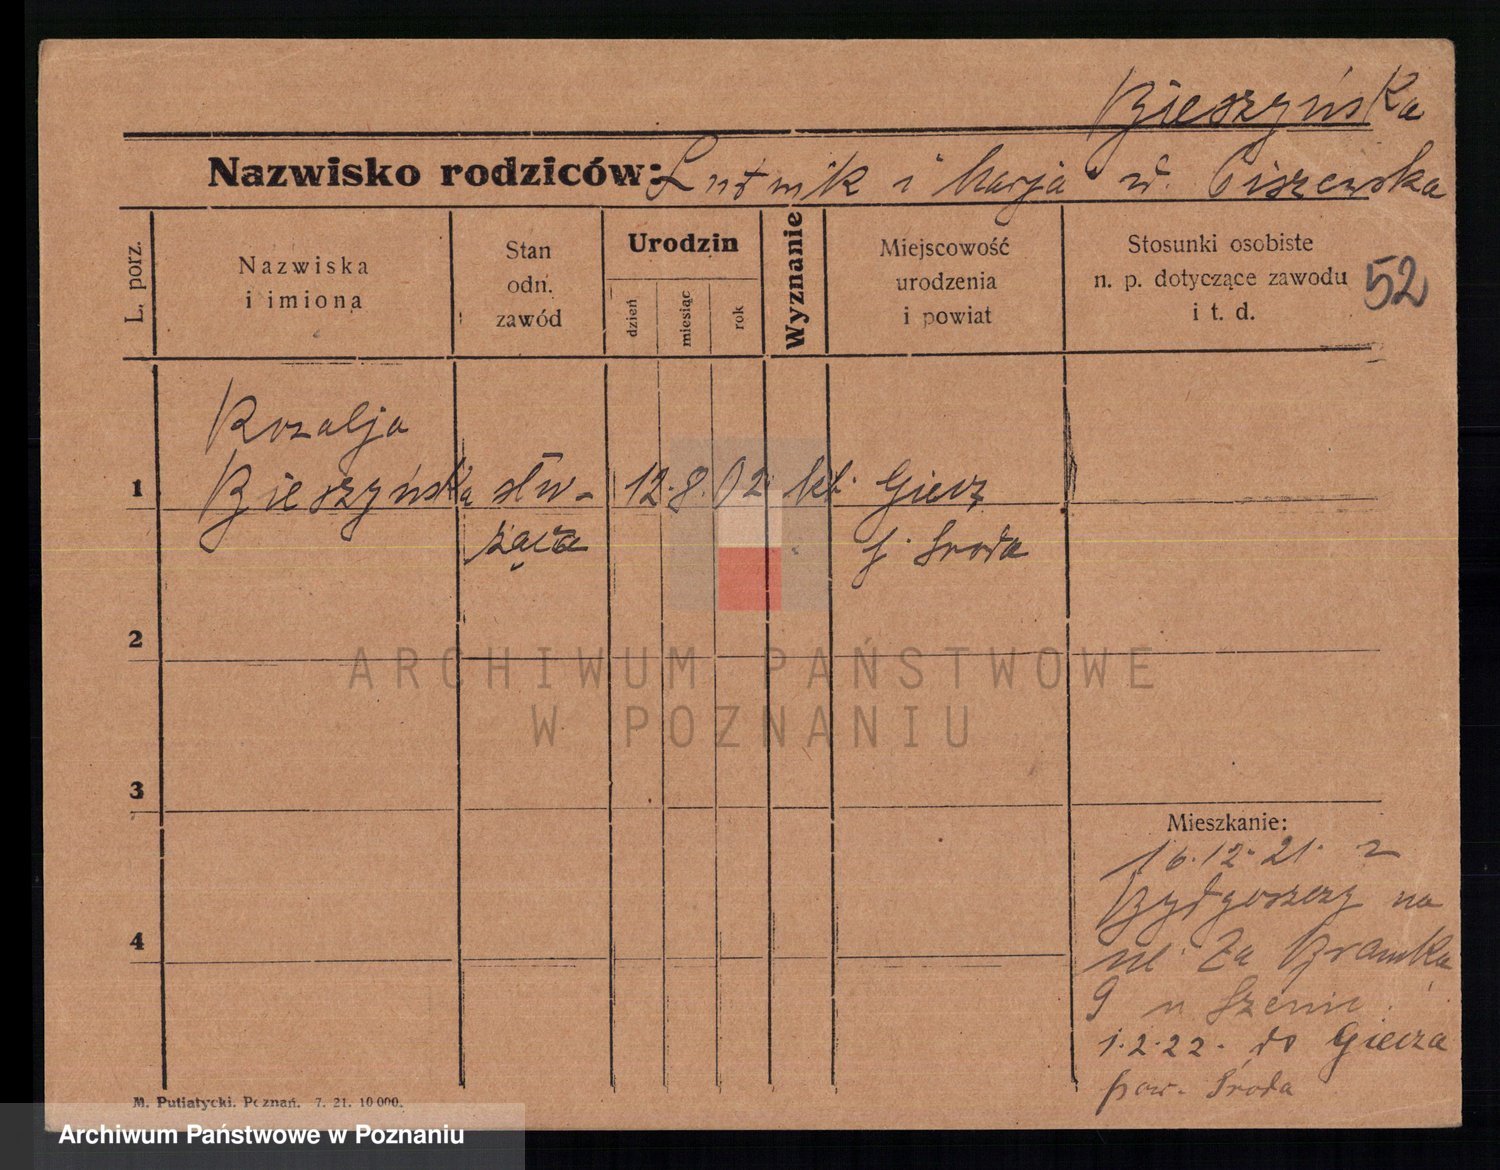 Bieszyńska
Nazwisko rodziców: Ludwik i Marja ur. Ciszewska
L. porz.
Nazwiska
i imiona
Stan
odn.
zawód
Urodzin
dzień
miesiąc
rok
Wyznanie
Miejscowość
urodzenia
i powiat
Stosunki osobiste
n. p. dotyczące zawodu
i t. d.
52
Rozalja
1 Bieszyńska słu- 12. 8. 02 kt. Giecz
żąca p. Środa
2
3
4
Mieszkanie:
16.12.21. z
Bydgoszczy na
ul. Za Bramką
9 u
1.2.22. do Giecza
pow. Środa
M. Putiatycki. Poznań. 7. 21. 10 000.
ARCHIWUM PAŃSTWOWE
W POZNANIU
Archiwum Państwowe w Poznaniu